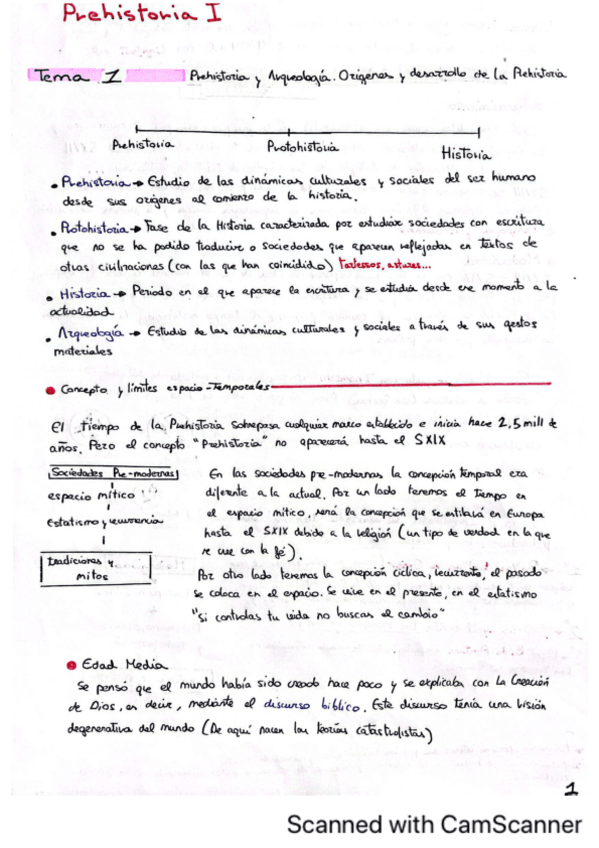 Prehistoria I
Tema 1 Prehistoria y Arqueología. Orígenes y desarrollo de la Prehistoria
Prehistoria Protohistoria Historia
• Prehistoria → Estudio de las dinámicas culturales y sociales del ser humano
desde sus orígenes al comienzo de la historia.
• Protohistoria → Fase de la Historia caracterizada por estudiar sociedades con escritura
que no se ha podido traducir o Sociedades que aparecen reflejadas en textos de
otras civilizaciones (con las que han coincidido) Tartessos, astures...
• Historia → Periodo en el que aparece la escritura y se estudia desde ese momento a la
actualidad
• Arqueología → Estudio de las dinámicas culturales y sociales a través de sus gestos
materiales
• Concepto y límites espacio-Temporales
El tiempo de la Prehistoria sobrepasa cualquier marco establecido e inicia hace 2,5 mill de
años. Pero el concepto "Prehistoria" no aparecerá hasta el SXIX
Sociedades Pre-modernas
espacio mítico
Estatismo y recurrencia
tradiciones y
mitos
En las sociedades pre-modernas la concepción temporal era
diferente a la actual. Por un lado tenemos el Tiempo en
el espacio mítico, será la concepción que se utilizará en Europa
hasta el SXIX debido a la religión (un tipo de verdad en la que
se cree con la fé).
Por otro lado tenemos la concepción cíclica, recurrente, el pasado
se coloca en el espacio. Se vive en el presente, en el estatismo
"Si controlas tu vida no buscas el cambio"
• Edad Media
Se pensó que el mundo había sido creado hace poco y se explicaba con la Creación
de Dios, es decir, mediante el discurso bíblico. Este discurso tenía una visión
degenerativa del mundo (De aquí nacen las teorías catastrofistas)
1
Scanned with CamScanner